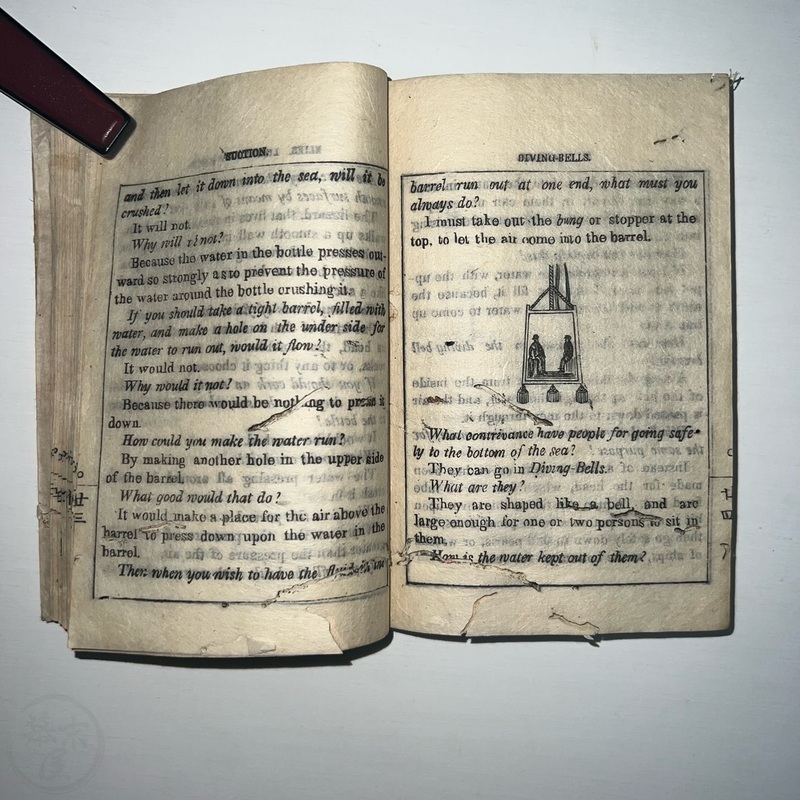 SUCTION.
and then let it down into the sea, will it be
crushed?
It will not.
Why will it not?
Because the water in the bottle presses out-
ward so strongly as to prevent the pressure of
the water around the bottle crushing it.
If you should take a tight barrel, filled with
water, and make a hole on the under side for
the water to run out, would it flow?
It would not.
Why would it not?
Because there would be nothing to press it
down.
How could you make the water run?
By making another hole in the upper side
of the barrel.
What good would that do?
It would make a place for the air above the
barrel to press down upon the water in the
barrel.
Then when you wish to have the in the
DIVING-BELLS.
barrel run out at one end, what must you
always do?
I must take out the bung or stopper at the
top, to let the air come into the barrel.
What contrivance have people for going safe-
ly to the bottom of the sea?
They can go in Diving-Bells.
What are they?
They are shaped like a bell, and are
large enough for one or two persons to sit in
them.
How is the water kept out of them?
十三
十四